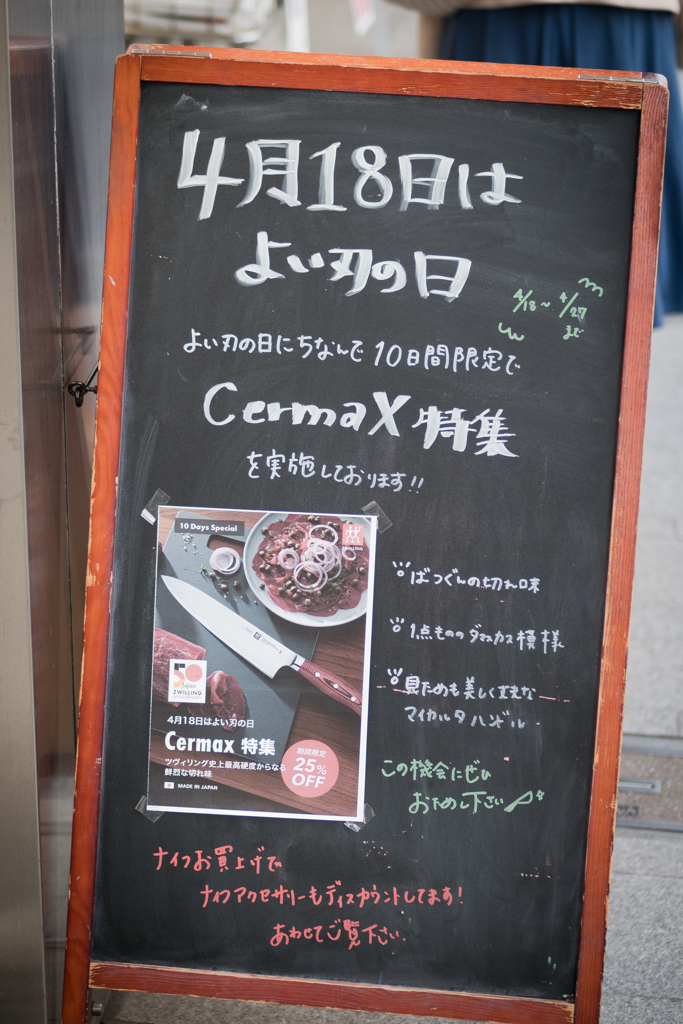 4月18日は
よい刃の日
4/18〜4/27
まで
よい刃の日にちなんで10日間限定で
CermaX 特集
を実施しております!!
10 Days Special
ZWILLING
50
Japan
ZWILLING
4月18日はよい刃の日
Cermax 特集
ツヴィリング史上最高硬度からなる
鮮烈な切れ味
MADE IN JAPAN
期間限定
25%
OFF
ばつぐんの切れ味
1点もののダマスカス模様
見ためも美しく丈夫な
マイカルタハンドル
この機会にぜひ
おためし下さい
ナイフお買上げで
ナイフアクセサリーもディスカウントしてます!
あわせてご覧下さい.